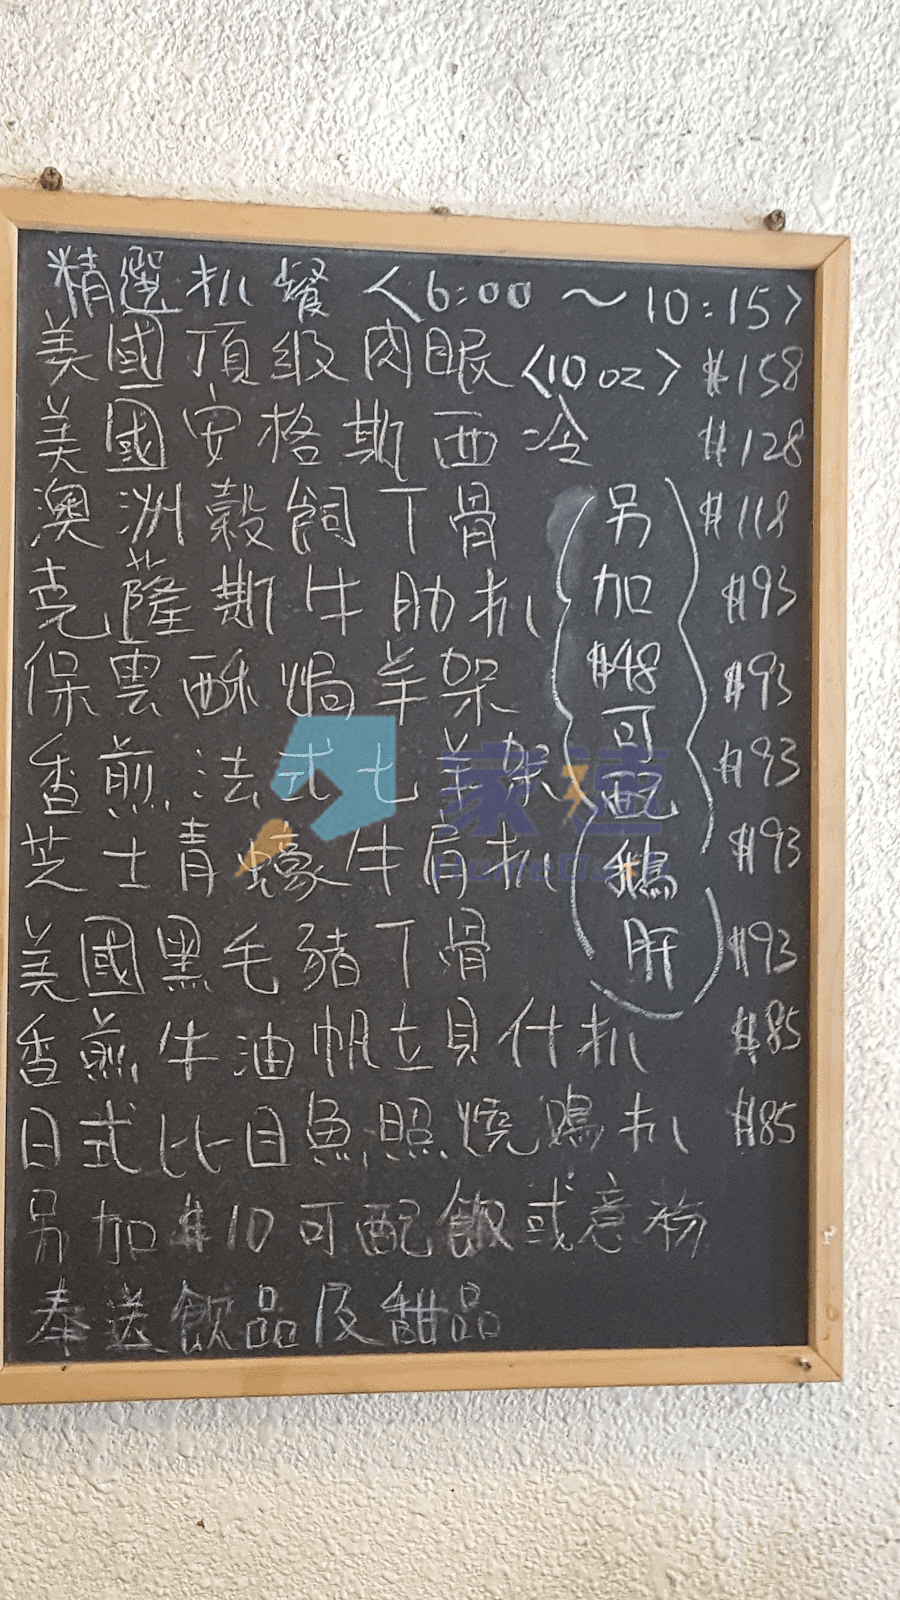 精選扒餐 <6:00 ~ 10:15>
美國頂級肉眼 <10 oz> $158
美國安格斯西冷 $128
澳洲穀飼丁骨 $118
克薩斯牛肋扒 $93
保雲酥焗羊架 $93
香煎法式七羊架 $93
芝士青蠔牛肩扒 $93
美國黑毛豬丁骨 $93
香煎牛油帆立貝什扒 $85
日式比目魚照燒鴨扒 $85
另加$48可配鵝肝
另加$10可配飯或意粉
奉送飲品及甜品
家速
HomeDash